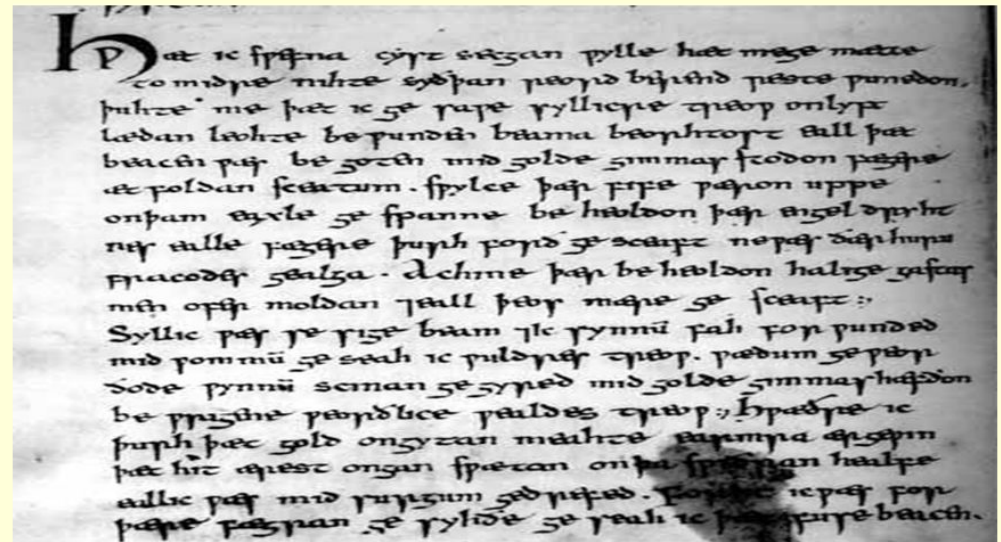 HǷæt ic sƿefna cyst secgan ƿylle hæt mege mætte
to midre nihte syðþan reord berend reste ƿunedon.
þuhte me þæt ic ge saƿe syllicre treoƿ onlyft
lædan leohte be ƿunden beama beorhtost eall þæt
beacen ƿæs be goten mid golde gimmas stodon fægere
æt foldan sceatum . sƿylce þær fife ƿæron uppe
onþam eaxle ge spanne be heoldon þær engel dryht
nes ealle fægere þurh forð ge sceaft ne ƿæs ðær huru
fracodes gealga . Achine þær be heoldon halige gastas
men ofer moldan ⁊eall þeos mære ge sceaft:,
Syllic ƿæs se sige beam ⁊ic synnū fah for ƿunded
mid ƿommū ge seah ic ƿuldres treoƿ. ƿædum ge ƿeor
ðode ƿynnū scinan ge gyred mid golde gimmas hæfdon
be ƿrigene ƿeorðlice ƿealdes treoƿ:, Hƿæðre ic
þurh þæt gold ongytan meahte earmra ærgeƿin
þæt hit ærest ongan sƿætan onþa sƿiðran healfe
eall ic ƿæs mid surgum gedrefed . forht icƿæs for
þære fægran ge syhðe ge seah ic þæt fuse beacen.